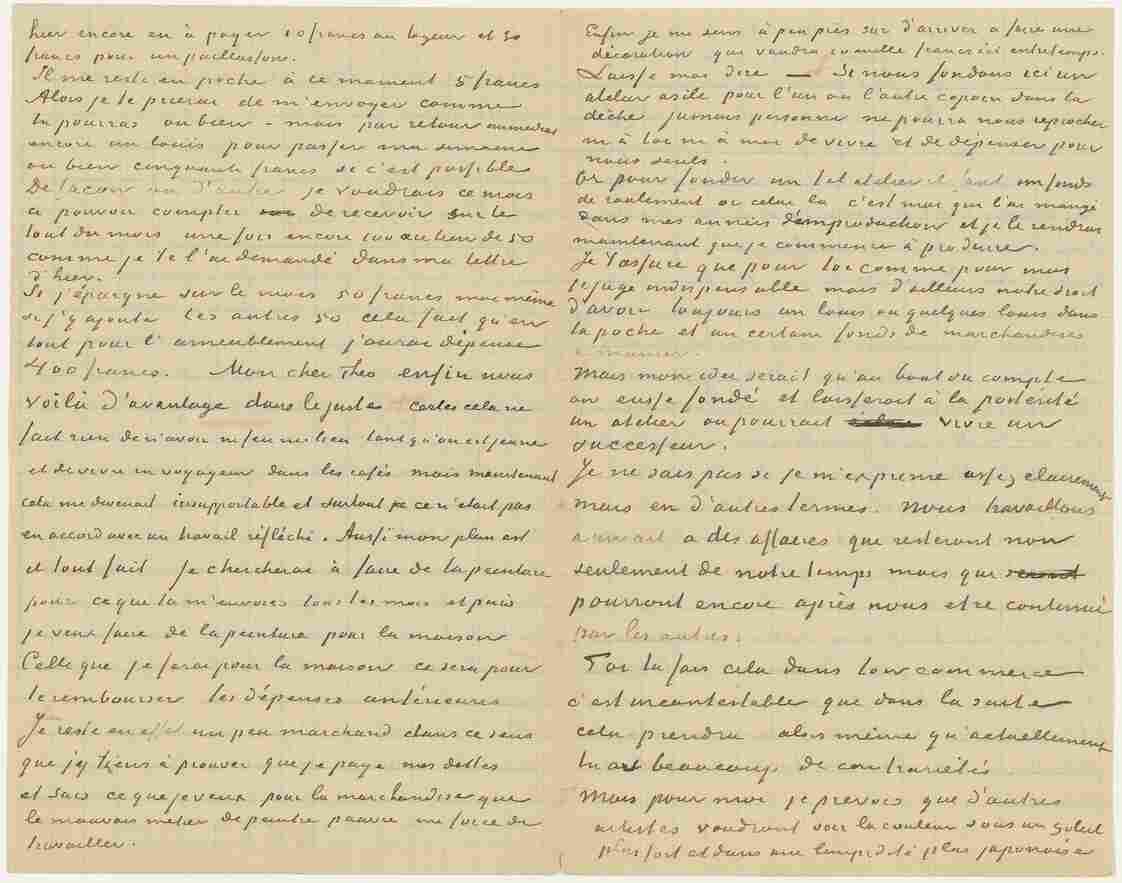 hier encore eu à payer 10 francs au logeur et 20
francs pour un paillasson.
Il me reste en poche à ce moment 5 francs
Alors je te prierai de m'envoyer comme
tu pourras ou bien – mais par retour
encore un louis pour passer ma semaine
ou bien cinquante francs si c'est possible
De façon ou d'autre je voudrais ce mois
ci pouvoir compter de recevoir sur le
tout du mois une fois encore 100 au lieu de 50
comme je te l'ai demandé dans ma lettre
d'hier.
Si j'épargne sur le mois 50 francs moi même
et j'y ajoute les autres 50 cela fait qu'en
tout pour l'ameublement j'aurai dépensé
400 francs. Mon cher Theo enfin nous
voilà d'avantage dans le juste – certes cela ne
fait rien de n'avoir ni feu ni lieu tant qu'on est jeune
et de vivre en voyageur dans les cafés mais maintenant
cela me devenait insupportable et surtout ce n'était pas
en accord avec un travail réfléchi. Aussi mon plan est
il tout fait je chercherai à faire de la peinture
pour ce que tu m'envoies tous les mois et puis
je veux faire de la peinture pour la maison
Celle que je ferai pour la maison ce sera pour
te rembourser les dépenses antérieures
Je reste en effet un peu marchand dans ce sens
que j'y tiens à prouver que je paye mes dettes
et sais ce que je veux pour la marchandise que
le mauvais métier de peintre pauvre me force de
travailler.
Enfin je me sens à peu près sur d'arriver à faire une
décoration que vaudra francs ici entretemps.
Laisse moi dire – Si nous fondons ici un
atelier asile pour l'un ou l'autre copain dans la
dèche jamais personne ne pourra nous reprocher
ni à toi ni à moi de vivre et de dépenser pour
nous seuls.
Or pour fonder un tel atelier il faut un fonds
de roulement or celui là c'est moi qui l'ai mangé
dans mes années d'improduction et je le rendrai
maintenant que je commence à produire.
Je t'assure que pour toi comme pour moi
je juge indispensable mais d'ailleurs notre droit
d'avoir toujours un louis ou quelques louis dans
la poche et un certain fonds de marchandises
à manier.
Mais mon idée serait qu'au bout du compte
on eusse fondé et laisserait à la postérité
un atelier où pourrait vivre un
successeur.
Je ne sais pas si je m'exprime assez clairement
mais en d'autres termes. nous travaillons
à un art à des affaires que resteront non
seulement de notre temps mais qui
pourront encore après nous etre continué
par les autres.
Toi tu fais cela dans ton commerce
c'est incontestable que dans la suite
cela prendra alors même qu'actuellement
tu as beaucoup de contrariétés.
Mais pour moi je prévois que d'autres
artistes voudront voir la couleur sous un soleil
plus fort et dans une limpidité plus japonaise